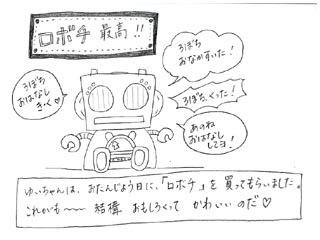 ロボチ 最高!!
ろぼち
おなかすいた!
ろぼち、くった!
あのね
おはなし
してヨ!
ろぼち
おはなし
きく♡
ゆいちゃんは、おたんじょう日に、「ロボチ」を買ってもらいました。
これがも〜〜 結構 おもしろくって かわいいのだ♡